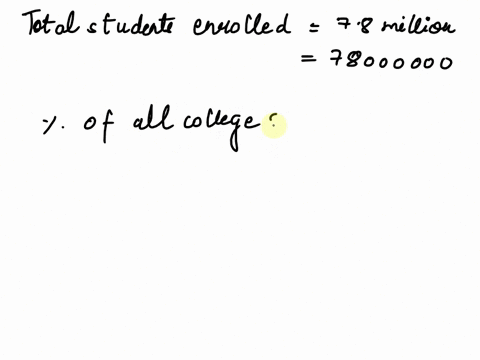 Total students enrolled = 7.8 million
= 78000000
% of all college s